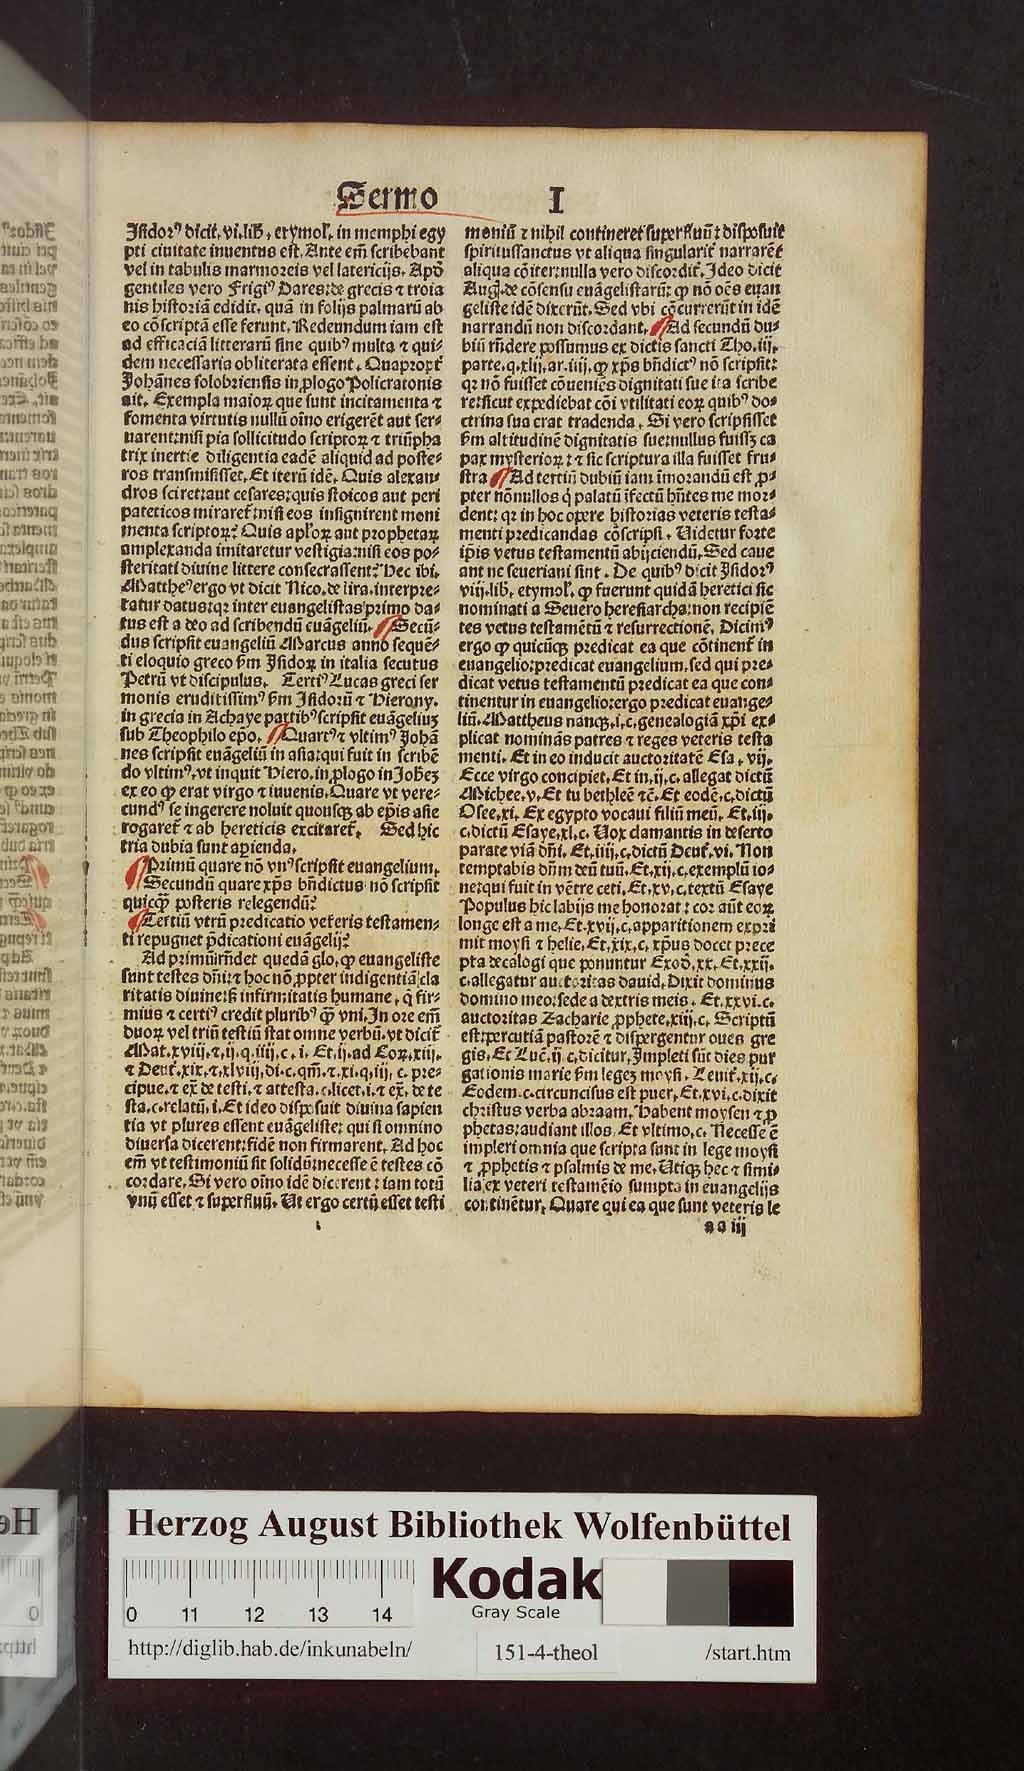 Sermo I
Isidorꝰ dicit. vi. lib̄. etymol̄. in memphi egy
pti ciuitate inuentus est. Ante em̄ scribebant
vel in tabulis marmoreis vel latericijs. Apđ
gentiles vero Frigiꝰ Dares: de grecis ⁊ troia
nis historiā edidit. quā in folijs palmarū ab
eo cōscriptā esse ferunt. Redeundum iam est
ad efficaciā litterarū sine quibꝰ multa ⁊ qui⸗
dem necessaria obliterata essent. Quapropt̄
Johānes solobriensis in ꝓlogo Policratonis
ait. Exempla maioꝝ que sunt incitamenta ⁊
fomenta virtutis nullū oīno erigerēt aut ser⸗
uarent: nisi pia sollicitudo scriptoꝝ ⁊ triūpha
trix inertie diligentia eadē aliquid ad poste⸗
ros transmisisset. Et iterū idē. Quis alexan⸗
dros sciret: aut cesares: quis stoicos aut peri
pateticos miraret̄: nisi eos insignirent moni
menta scriptoꝝ? Quis apl̄oꝝ aut prophetaꝝ
amplexanda imitaretur vestigia: nisi eos po⸗
steritati diuine littere consecrassent? Hec ibi.
Mattheꝰ ergo vt dicit Nico. de lira. interpre⸗
tatur datus: qꝛ inter euangelistas primo da⸗
tus est a deo ad scribendū euāgeliū. Secū⸗
dus scripsit euangeliū Marcus anno sequē⸗
ti eloquio greco s̄m Isidoꝝ in italia secutus
Petrū vt discipulus. Tertiꝰ Lucas greci ser
monis eruditissimꝰ s̄m Isidorū ⁊ Hierony.
in grecia in Achaye partibꝰ scripsit euāgeliuꝫ
sub Theophilo ep̄o. Quartꝰ ⁊ vltimꝰ Johā
nes scripsit euāgeliū in asia: qui fuit in scribē
do vltimꝰ. vt inquit Hiero. in ꝓlogo in Johēꝫ
ex eo ꝙ erat virgo ⁊ iuuenis. Quare vt vere⸗
cundꝰ se ingerere noluit quousqꝫ ab ep̄is asie
rogaret̄ ⁊ ab hereticis excitaret̄. Sed hic
tria dubia sunt aꝑienda.
Primū quare nō vnꝰ scripsit euangelium.
Secundū quare xp̄s bn̄dictus nō scripsit
quicꝙ̄ posteris relegendū?
Tertiū vtrū predicatio veteris testamen⸗
ti repugnet p̄dicationi euāgelij?
Ad primū rn̄det quedā glo. ꝙ euangeliste
sunt testes dn̄i: ⁊ hoc nō ꝓpter indigentiā cla
ritatis diuine: sꝫ infirmitatis humane. q̄ fir⸗
mius ⁊ certiꝰ credit pluribꝰ ꝙ̄ vni. In ore em̄
duoꝝ vel triū testiū stat omne verbū. vt dicit̄
Mat. xviij. ⁊. ij. q. iiij. c. i. Et. ij. ad Coꝝ. xiij.
⁊ Deut̄. xix. ⁊. xlviij. di. c. qm̄. ⁊. xi. q. iij. c. pre⸗
cipue. ⁊ ex̄ de testi. ⁊ attesta. c. licet. i. ⁊ ex̄. de te
sta. c. relatū. i. Et ideo disposuit diuina sapien
tia vt plures essent euāgeliste: qui si omnino
diuersa dicerent: fidē non firmarent. Ad hoc
em̄ vt testimoniū sit solidū: necesse ē testes cō
cordare. Si vero oīno idē dicerent: iam totū
vnū esset ⁊ superfluū. Ut ergo certū esset testi
moniū ⁊ nihil contineret superfluū: disposuit
spiritussanctus vt aliqua singularit̄ narrarēt
aliqua cōiter: nulla vero discordit̄. Ideo dicit
Aug. de cōsensu euāgelistarū: ꝙ nō oēs euan
geliste idē dixerūt. Sed vbi cōcurrerūt in idē
narrandū non discordant. Ad secundū du⸗
biū rn̄dere possumus ex dictis sancti Tho. iij.
parte. q. xlij. ar. iiij. ꝙ xp̄s bn̄dictꝰ nō scripsit:
qꝛ nō fuisset cōueniēs dignitati sue ita scribe
re: sicut expediebat cōi vtilitati eoꝝ quibꝰ do⸗
ctrina sua erat tradenda. Si vero scripsisset
s̄m altitudinē dignitatis sue: nullus fuissꝫ ca
pax mysterioꝝ: ⁊ sic scriptura illa fuisset fru⸗
stra Ad tertiū dubiū iam īmorandū est ꝓ⸗
pter nōnullos q̇ palatū īfectū hn̄tes me mor⸗
dent: qꝛ in hoc opere historias veteris testa⸗
menti predicandas cōscripsi. Uidetur forte
ip̄is vetus testamentū abijciendū. Sed caue
ant ne seueriani sint. De quibꝰ dicit Isidorꝰ
viij. lib. etymol̄. ꝙ fuerunt quidā heretici sic
nominati a Seuero heresiarcha: non recipiē
tes vetus testamētū ⁊ resurrectionē. Dicimꝰ
ergo ꝙ quicūqꝫ predicat ea que cōtinent̄ in
euangelio: predicat euangelium. sed qui pre⸗
dicat vetus testamentū predicat ea que con⸗
tinentur in euangelio: ergo predicat euange⸗
liū. Mattheus nanqꝫ. i. c. genealogiā xp̄i ex⸗
plicat nominās patres ⁊ reges veteris testa
menti. Et in eo inducit auctoritatē Esa. vij.
Ecce virgo concipiet. Et in. ij. c. allegat dictū
Michee. v. Et tu bethleē ⁊c̄. Et eodē. c. dictū
Osee. xi. Ex egypto vocaui filiū meū. Et. iij.
c. dictū Esaye. xl. c. Uox clamantis in deserto
parate viā dn̄i. Et. iiij. c. dictū Deut̄. vi. Non
temptabis dn̄m deū tuū. Et. xij. c. exemplū io⸗
ne: qui fuit in vētre ceti. Et. xv. c. textū Esaye
Populus hic labijs me honorat: cor aūt eoꝝ
longe est a me. Et. xvij. c. apparitionem expri
mit moysi ⁊ helie. Et. xix. c. xp̄us docet prece
pta decalogi que ponuntur Exođ. xx. Et. xxij.
c. allegatur auctoritas dauid. Dixit dominus
domino meo: sede a dextris meis. Et. xxvi. c.
auctoritas Zacharie ꝓphete. xiij. c. Scriptū
est: percutiā pastorē ⁊ dispergentur oues gre
gis. Et Luc̄. ij c. dicitur. Impleti sūt dies pur
gationis marie s̄m legeꝫ moysi. Leuit̄. xij. c.
Eodem. c. circuncisus est puer. Et. xvi. c. dixit
christus verba abraam. Habent moysen ⁊ ꝓ
phetas: audiant illos. Et vltimo. c. Necesse ē
impleri omnia que scripta sunt in lege moysi
⁊ ꝓphetis ⁊ psalmis de me. Utiqꝫ hec ⁊ simi⸗
lia ex veteri testamēto sumpta in euangelijs
continētur. Quare qui ea que sunt veteris le
aa iij
Herzog August Bibliothek Wolfenbüttel
Kodak
Gray Scale
0 11 12 13 14
http://diglib.hab.de/inkunabeln/ 151-4-theol /start.htm